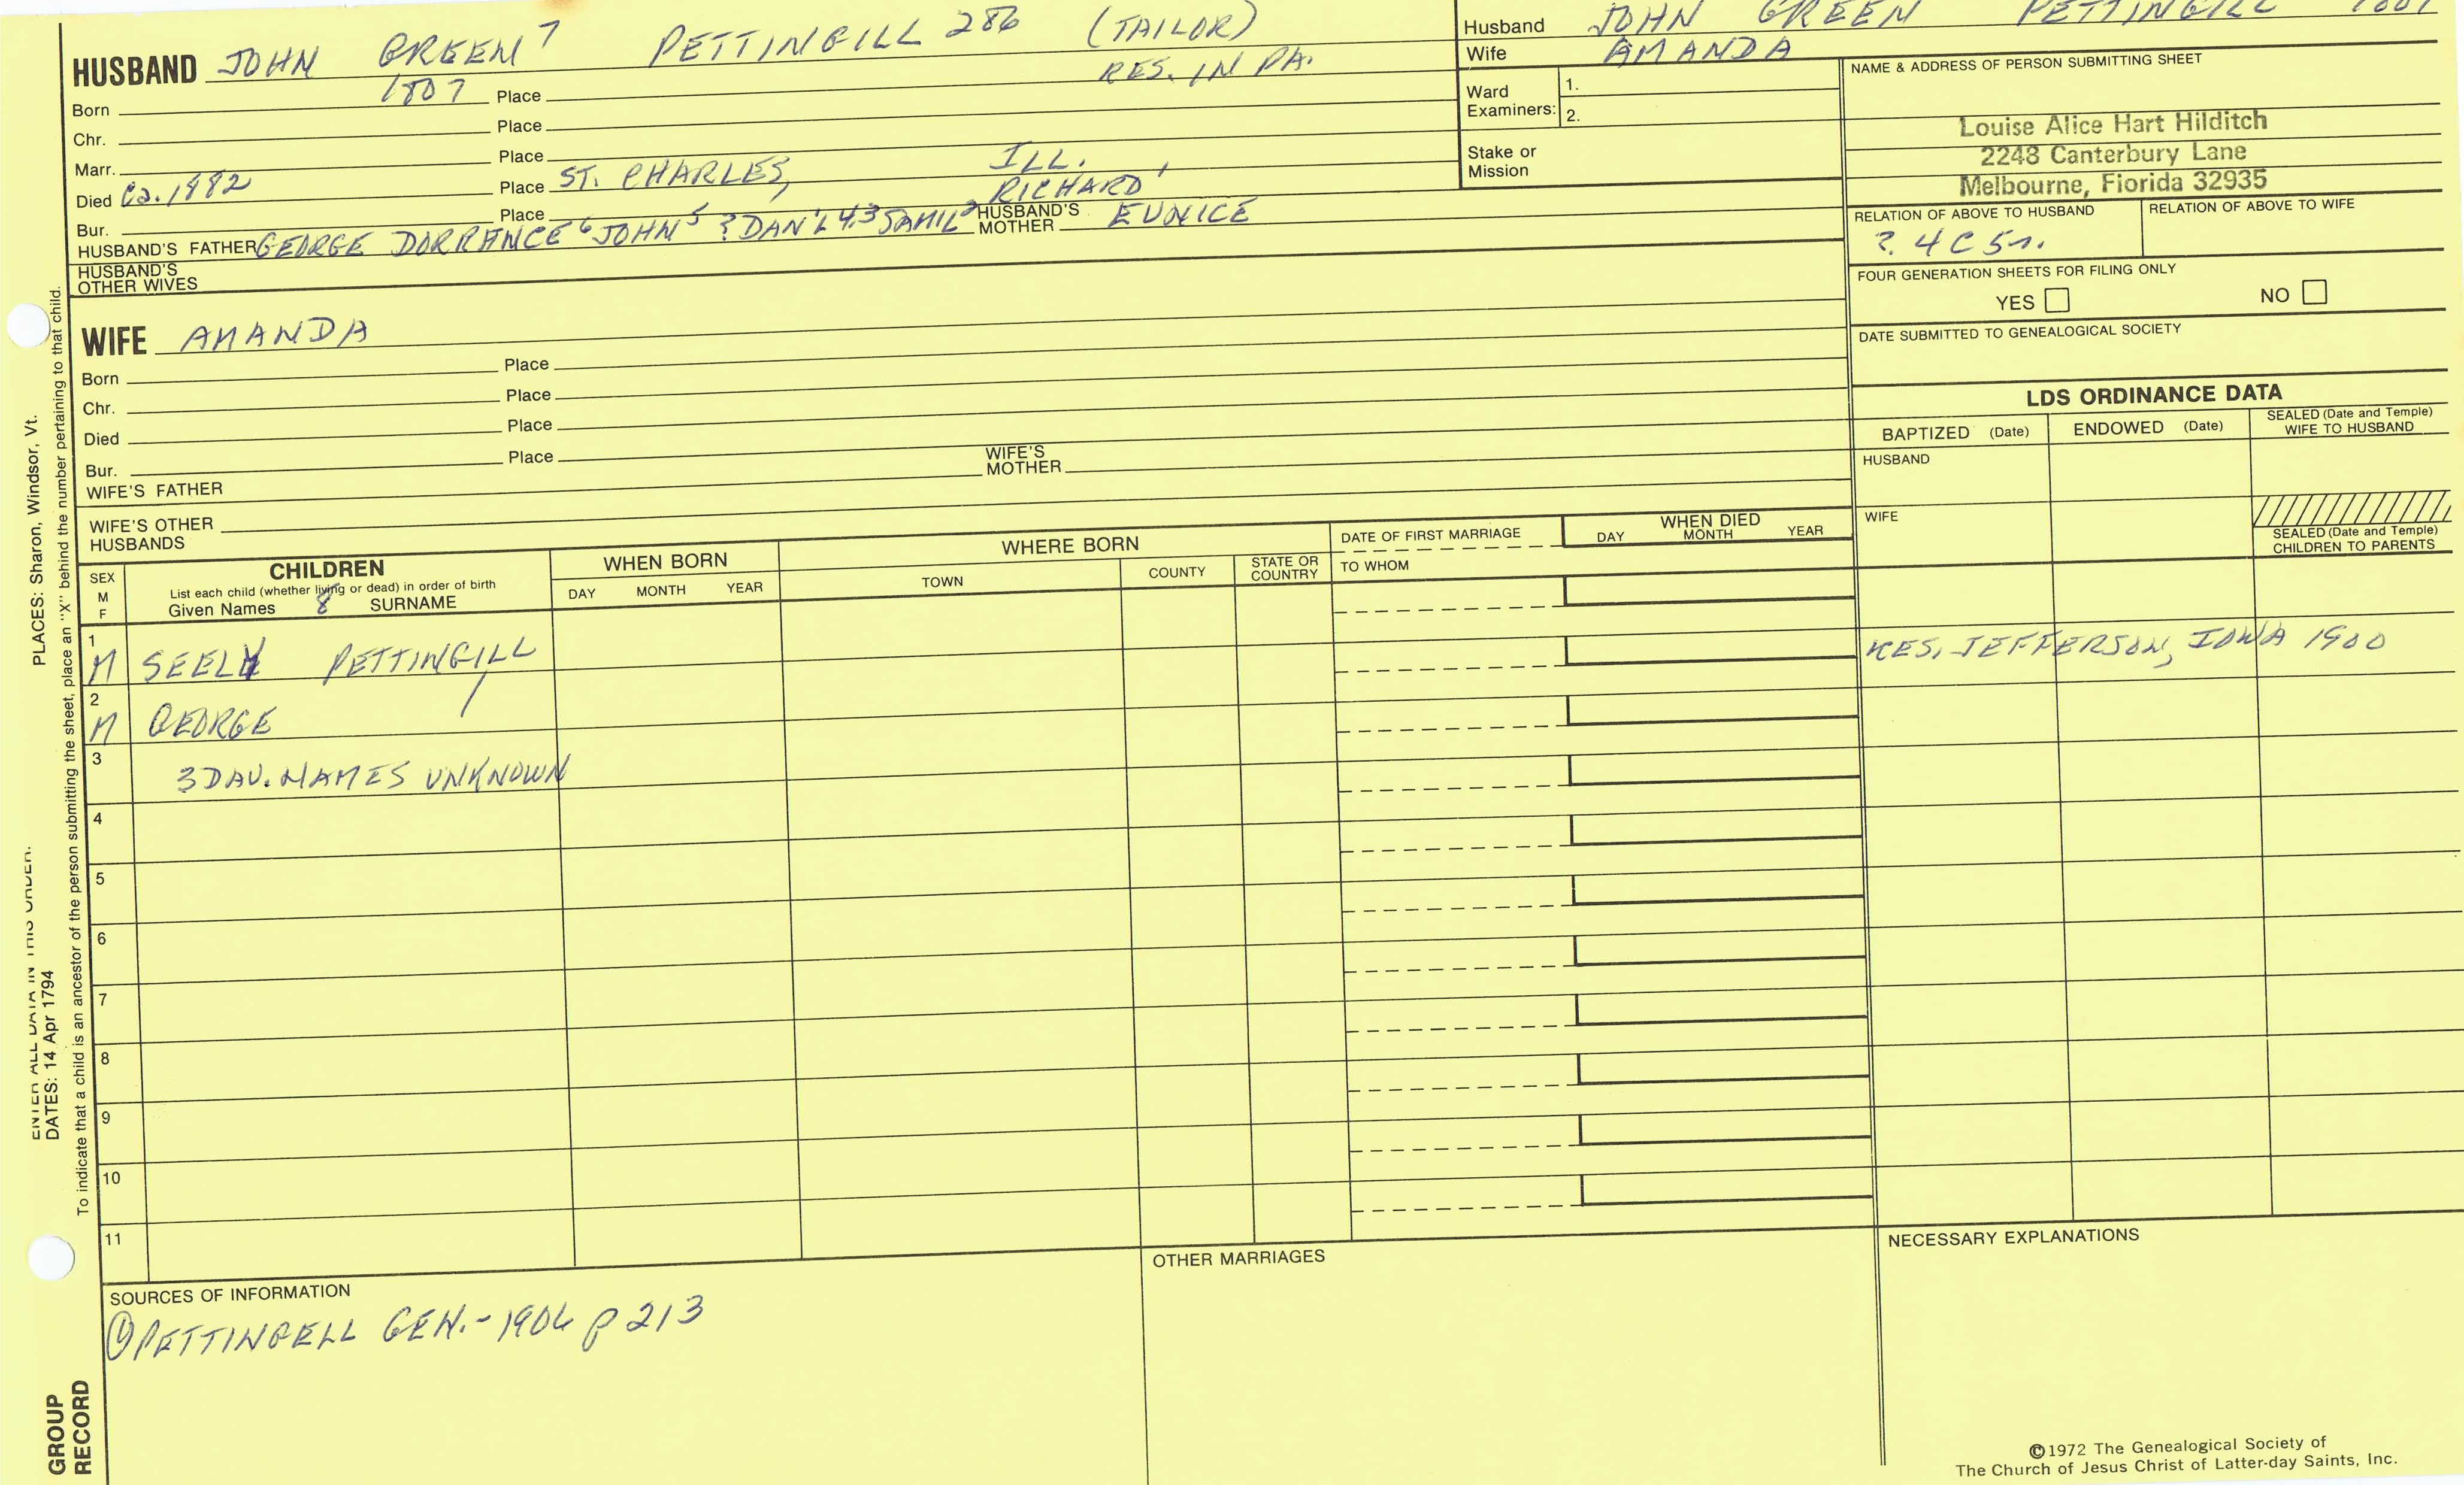 HUSBAND JOHN GREEN 7 PETTINGILL 286 (TAILOR)
RES. IN PA.
Born 1807 Place
Chr. Place
Marr. Place
Died Ca. 1882 Place ST. CHARLES, ILL.
Bur. Place
HUSBAND'S FATHER GEORGE DORRANCE 6 JOHN 5 ? DAN'L 4,3 SAM'L 2 RICHARD 1 HUSBAND'S MOTHER EUNICE
HUSBAND'S OTHER WIVES
Husband JOHN GREEN PETTINGILL 1807
Wife AMANDA
Ward Examiners: 1.
2.
Stake or Mission
NAME & ADDRESS OF PERSON SUBMITTING SHEET
Louise Alice Hart Hilditch
2248 Canterbury Lane
Melbourne, Florida 32935
RELATION OF ABOVE TO HUSBAND RELATION OF ABOVE TO WIFE
? 4 C 5 r.
FOUR GENERATION SHEETS FOR FILING ONLY
YES NO
DATE SUBMITTED TO GENEALOGICAL SOCIETY
WIFE AMANDA
Born Place
Chr. Place
Died Place
Bur. Place
WIFE'S FATHER WIFE'S MOTHER
WIFE'S OTHER HUSBANDS
LDS ORDINANCE DATA
BAPTIZED (Date) ENDOWED (Date) SEALED (Date and Temple) WIFE TO HUSBAND
HUSBAND
WIFE
SEALED (Date and Temple) CHILDREN TO PARENTS
SEX M F
CHILDREN
List each child (whether living or dead) in order of birth
Given Names 8 SURNAME
WHEN BORN
DAY MONTH YEAR
WHERE BORN
TOWN COUNTY STATE OR COUNTRY
DATE OF FIRST MARRIAGE
TO WHOM
WHEN DIED
DAY MONTH YEAR
1 M SEELY PETTINGILL RES. JEFFERSON, IOWA 1900
2 M GEORGE /
3 3 DAU. NAMES UNKNOWN
4
5
6
7
8
9
10
11
SOURCES OF INFORMATION
① PETTINGELL GEN. - 1906 p 213
OTHER MARRIAGES
NECESSARY EXPLANATIONS
©1972 The Genealogical Society of
The Church of Jesus Christ of Latter-day Saints, Inc.
ENTER ALL DATA IN THIS ORDER:
DATES: 14 Apr 1794 PLACES: Sharon, Windsor, Vt.
To indicate that a child is an ancestor of the person submitting the sheet, place an "X" behind the number pertaining to that child.
GROUP
RECORD